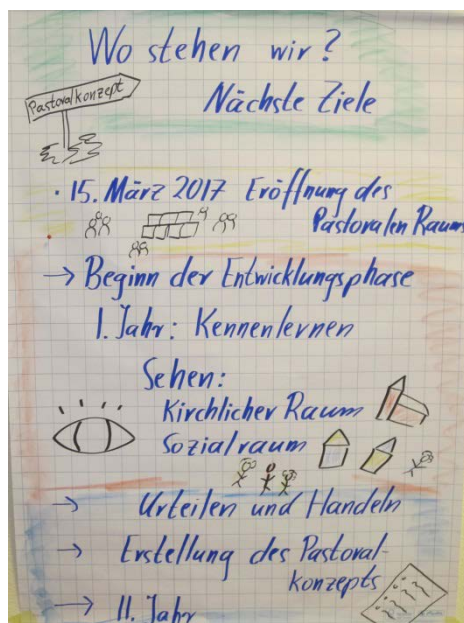 Wo stehen wir?
Pastoralkonzept
Nächste Ziele
· 15. März 2017 Eröffnung des
Pastoralen Raums
→ Beginn der Entwicklungsphase
I. Jahr: Kennenlernen
Sehen:
Kirchlicher Raum
Sozialraum
→ Urteilen und Handeln
→ Erstellung des Pastoral-
konzepts
→ II. Jahr